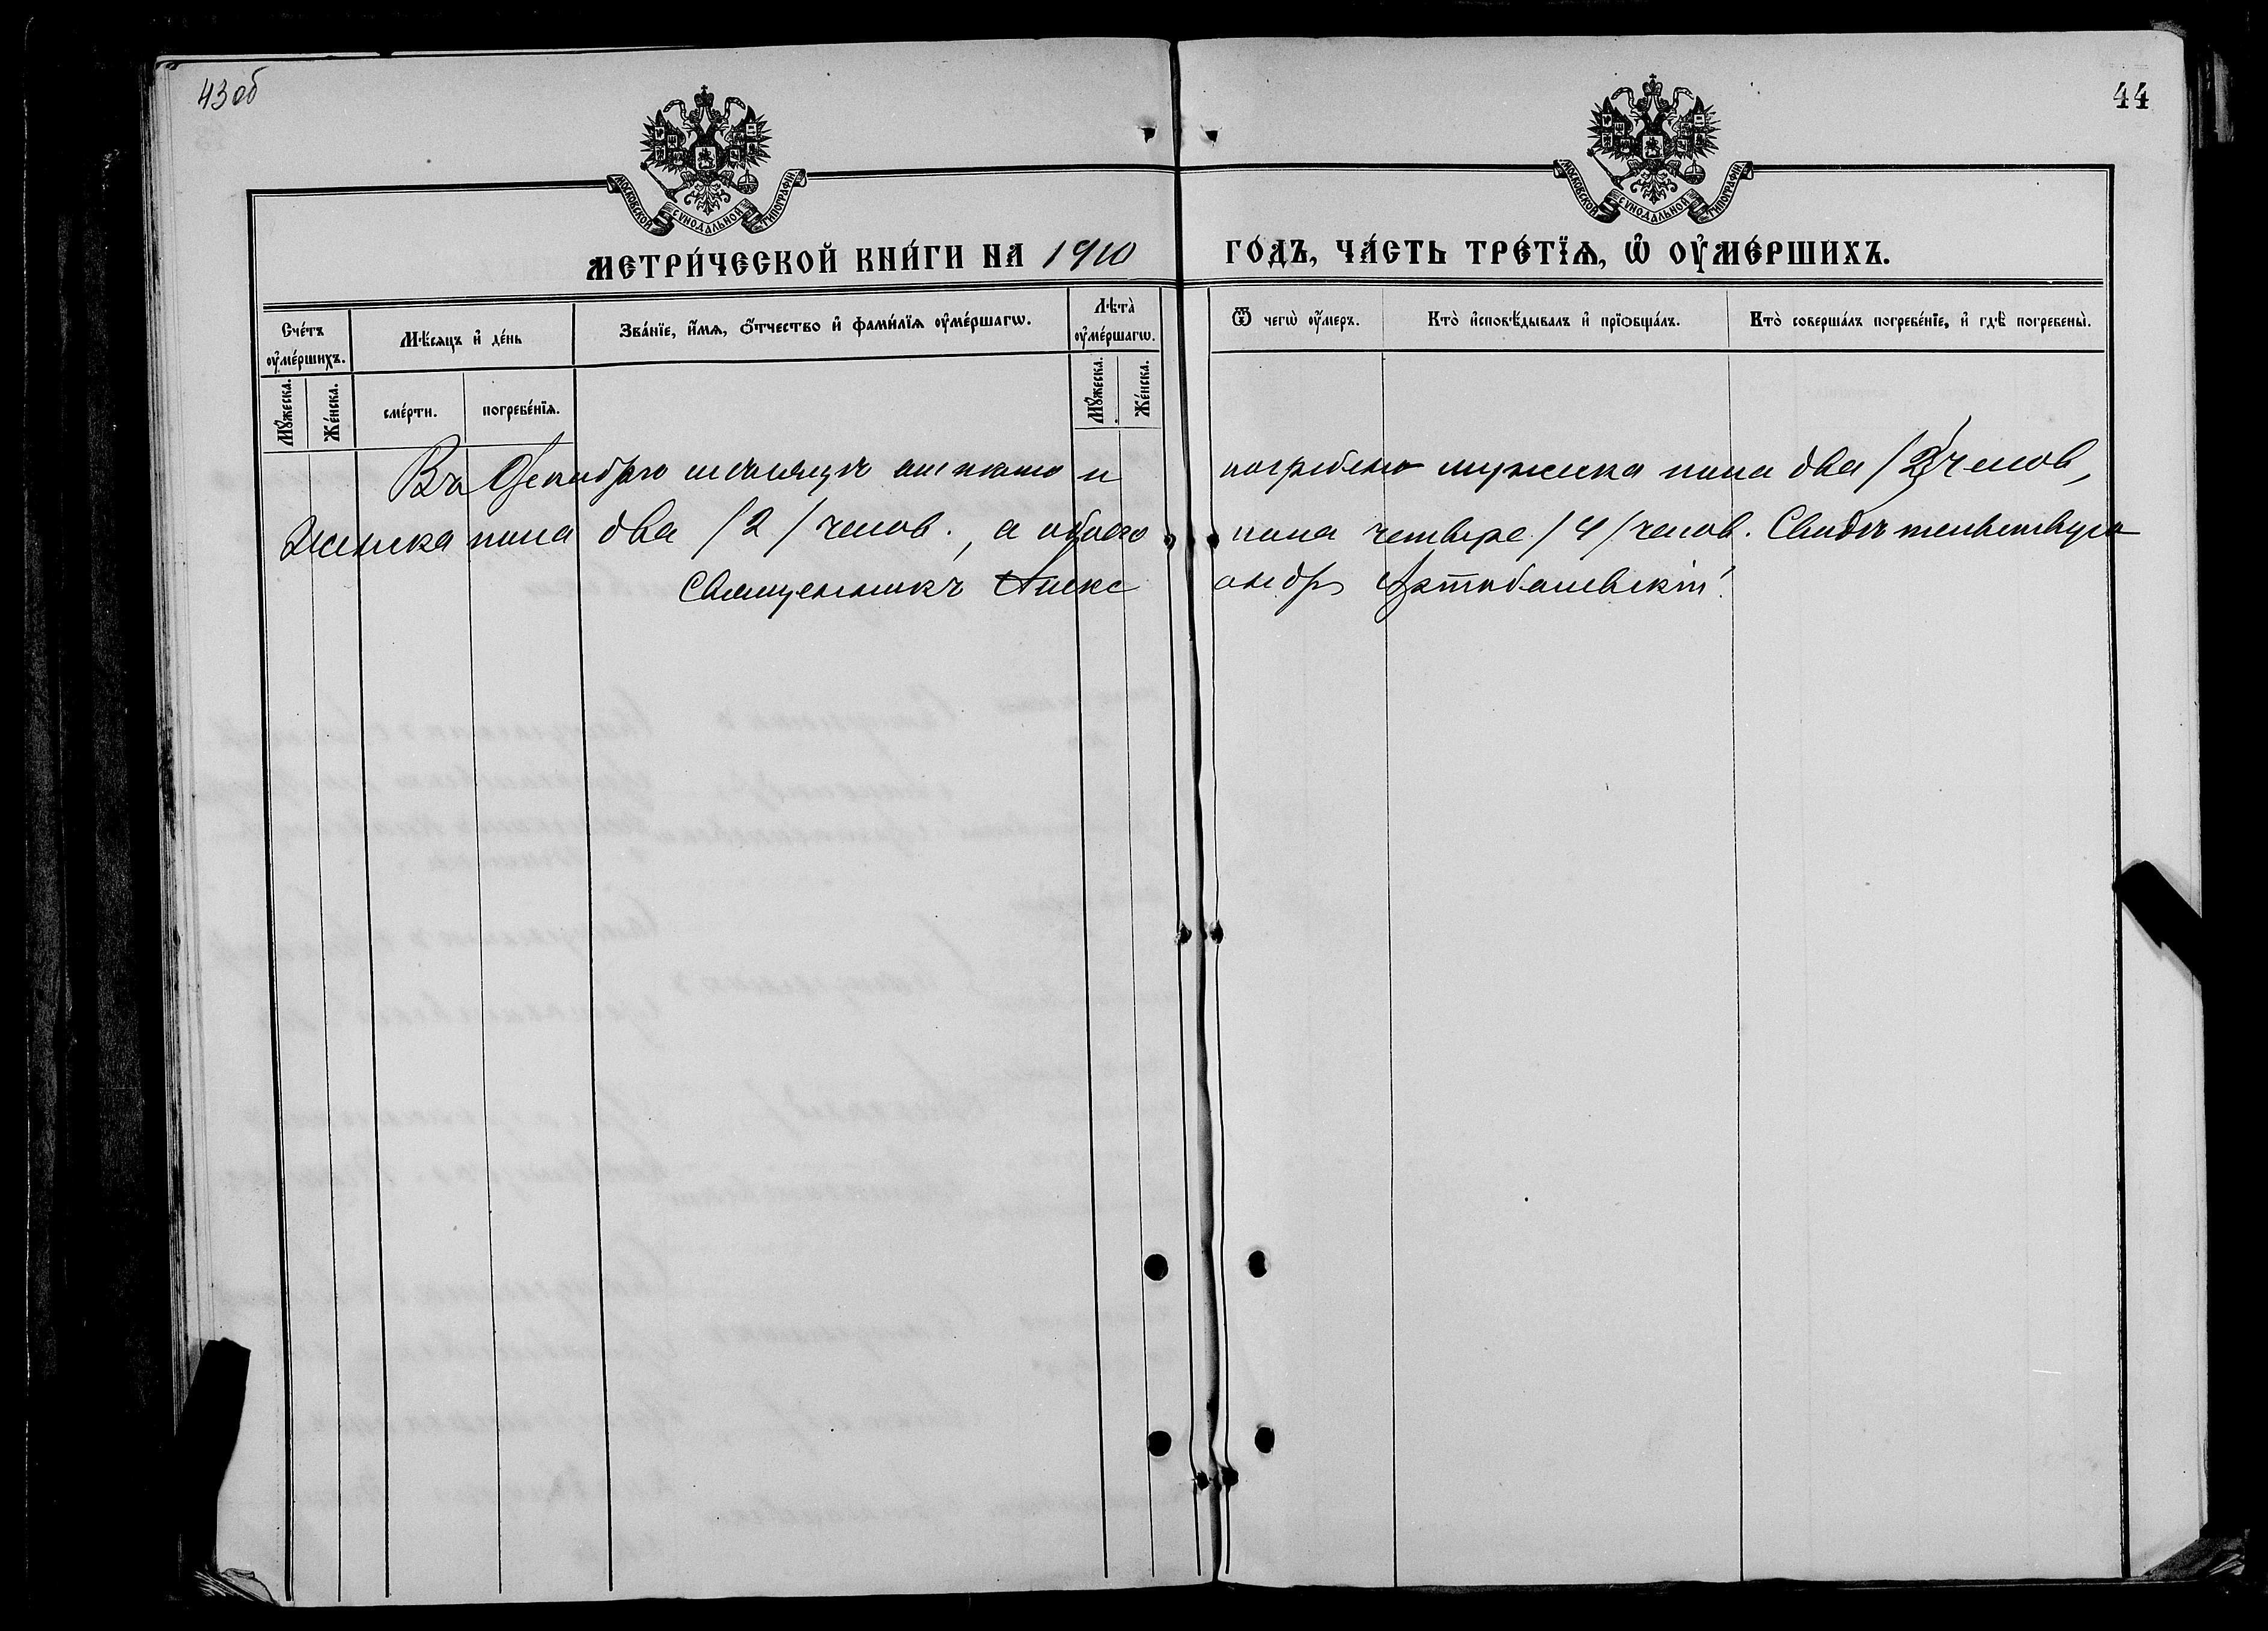 43 об
44
МОСКОВСКОЙ СѴНОДАЛЬНОЙ ТИПОГРАФІИ
МОСКОВСКОЙ СѴНОДАЛЬНОЙ ТИПОГРАФІИ
МЕТРИ́ЧЕСКОЙ КНИ́ГИ НА 1910 ГО́ДЪ, ЧА́СТЬ ТРЕ́ТЇѦ, Ѡ҆ ОУ҆МЕ́РШИХЪ.
Сче́тъ оу҆ме́ршихъ.
Мѣ́сяцъ и҆ де́нь
Зва́нїе, и҆́мѧ, ѻ҆́тчество и҆ фами́лїѧ оу҆ме́ршагѡ.
Лѣта̀ оу҆ме́ршагѡ.
Ѿ чегѡ̀ оу҆́меръ.
Кто̀ и҆сповѣ́дывалъ и҆ прїѻбща́лъ.
Кто̀ соверша́лъ погребе́нїе, и҆ гдѣ̀ погребены̀.
Мꙋ́жеска.
Же́нска.
сме́рти.
погребе́нїѧ.
Мꙋ́жеска.
Же́нска.
Въ Декабрѣ мѣсяцѣ и погребено мужска пола два /2/ челов,
женска пола два /2/ челов., а обоего пола четыре /4/ челов. Свидѣтельствую
Священникъ Александръ